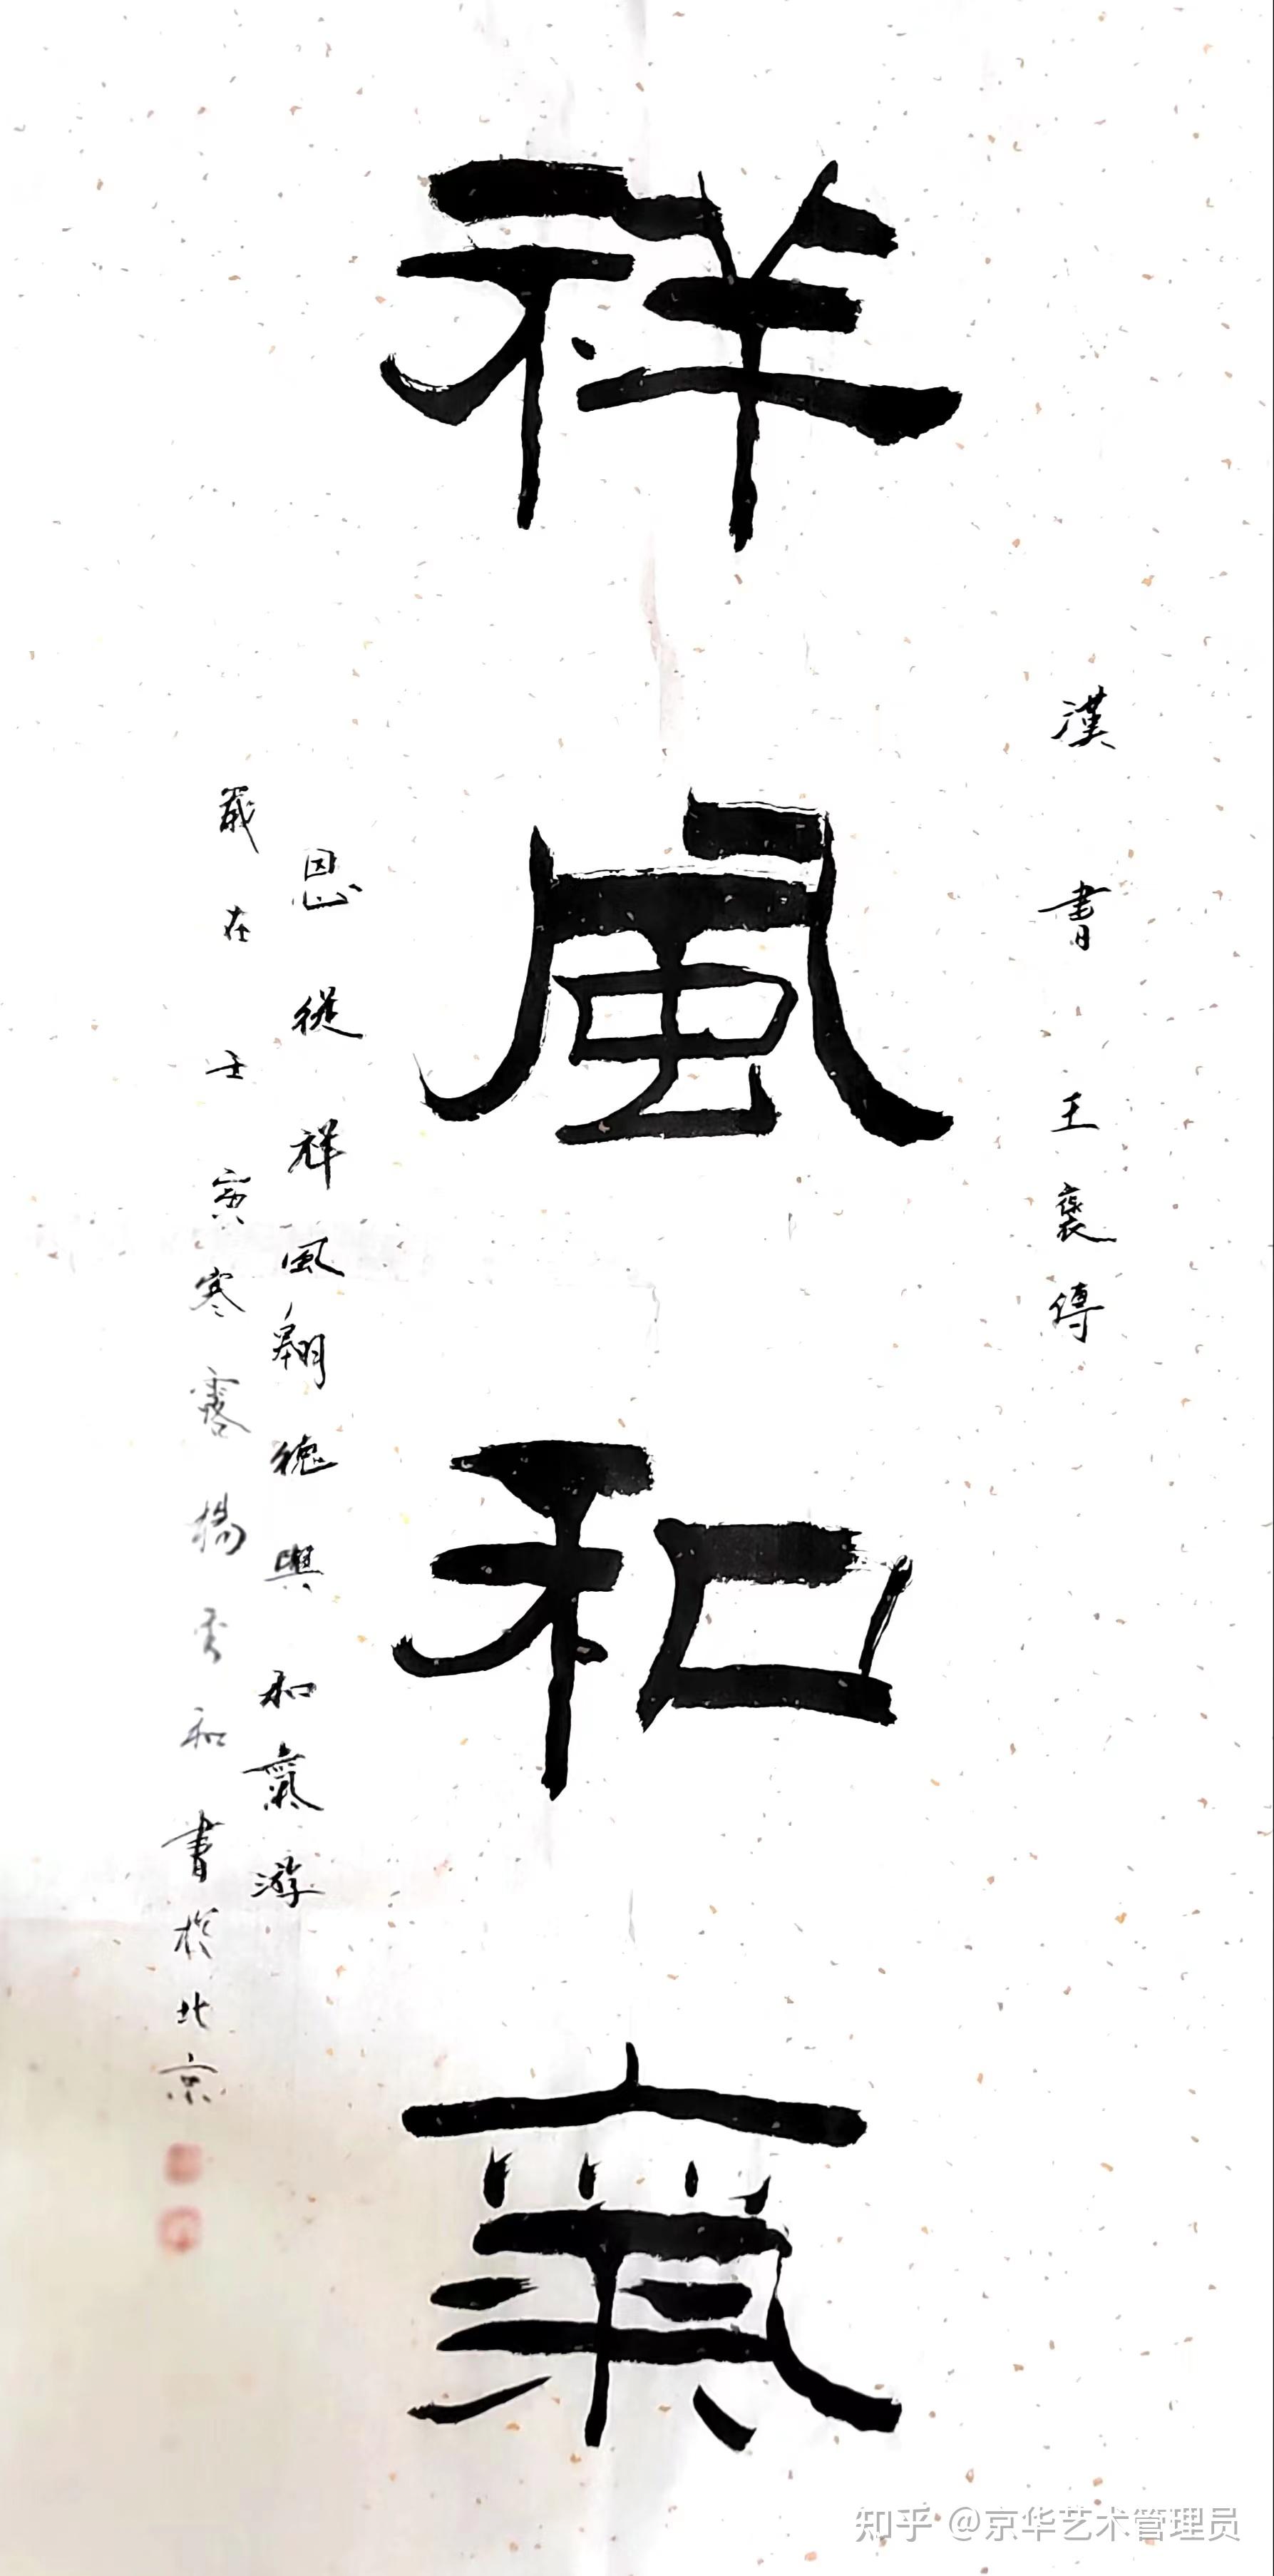 祥風和氣
漢書王褒傳
恩從祥風翱德與和氣游
歲在壬寅寒露楊雲和書於北京
知乎 @京华艺术管理员